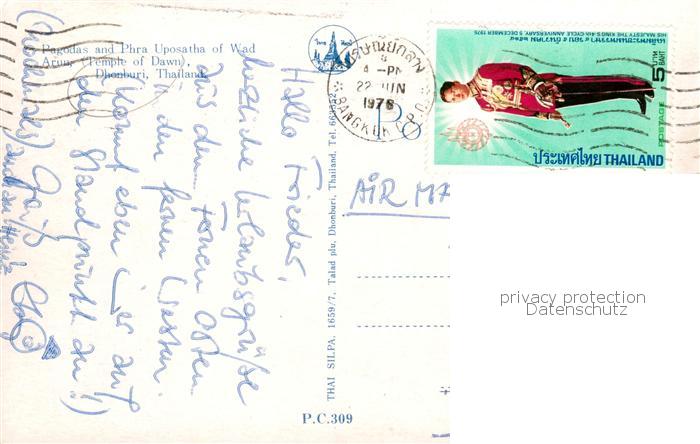 Pagodas and Phra Uposatha of Wad
Arun, (Temple of Dawn),
Dhonburi, Thailand.
Hallo Frieder,
herzliche Urlaubsgrüße
aus dem fernen Osten
in den fernen Westen.
(Kommt eben hier auf
den Standpunkt an!)
THAI SILPA, 1659/7, Talad plu, Dhonburi, Thailand. Tel.
P.C.309
AIR MA
4-PM
22 JUN
1976
BANGKOK
P.O.
HIS MAJESTY THE KING'S 4th CYCLE ANNIVERSARY, 5 DECEMBER 1975
5 บาท
BAHT
POSTAGE
ประเทศไทย THAILAND
privacy protection
Datenschutz